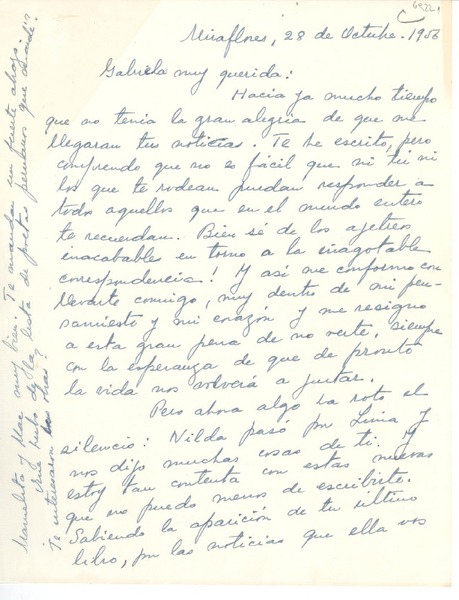 Miraflores, 28 de Octubre - 1956
Gabriela muy querida:
Hacía ya mucho tiempo
que no tenía la gran alegría de que me
llegaran tus noticias. Te he escrito, pero
comprendo que no es fácil que ni tú ni
los que te rodean puedan responder a
todos aquellos que en el mundo entero
te recuerdan. Bien sé de los ajetreos
inacabable en torno a la inagotable
correspondencia! Y así me conformo con
llevarte conmigo, muy dentro de mi pen-
samiento y mi corazón y me resigno
a esta gran pena de no verte, siempre
con la esperanza de que de pronto
la vida nos volverá a juntar.
Pero ahora algo ha roto el
silencio: Nilda pasó por Lima y
nos dijo muchas cosas de ti. Y
estoy tan contenta con estas nuevas
que no puedo menos de escribirte.
Sabiendo la aparición de tu último
libro, por las noticias que ella nos
Manuelita y Mac muy bien. Te mandan un fuerte abrazo.
hubo de la lista de poetas peruanos que
Te interesaron las obras?